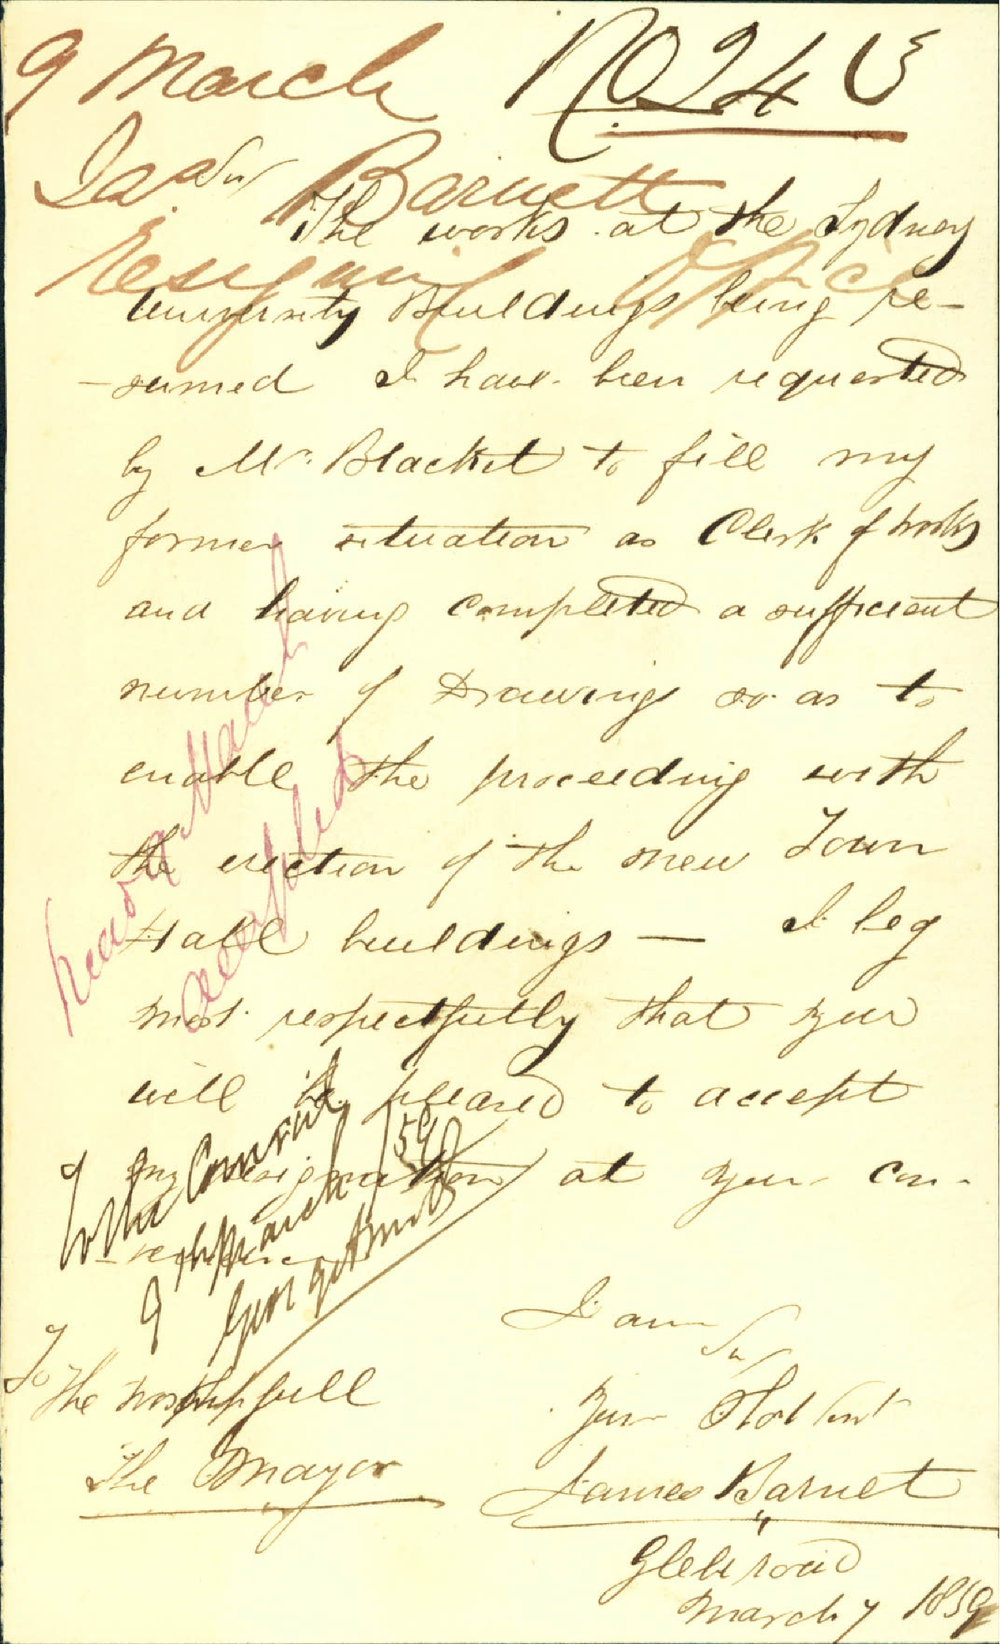 9 March No 246
Jas Barnett
Resigning Office
Sir
The works at the Sydney
University Buildings being re-
-sumed I have been requested
by Mr. Blacket to fill my
former situation as Clerk of works
and having completed a sufficient
number of Drawings so as to
enable the proceeding with
the erection of the new Town
Hall buildings — I beg
most respectfully that you
will be pleased to accept
my resignation at your con-
I am
Sir
Your Obt Servt
James Barnet
Glebe road
March 7 1859
To
The Worshipfull
The Mayor
accepted
To the Council
9th March /59